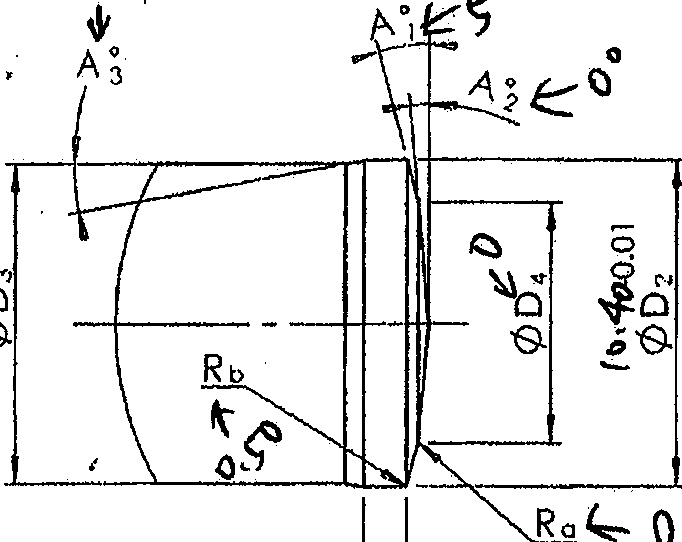 A°1 ← 5
A°3
A°2 ← 0°
0
ΦD3
ΦD4
10.40 0.01
ΦD2
Rb
0.50
Ra ← 0